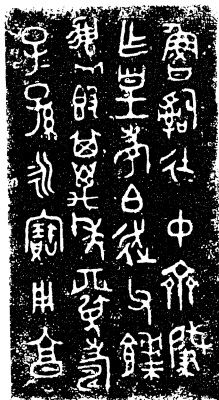 魯𤔲徒中齊肇
乍皇考白走父䬲
盨𣪘其萬年眉壽
子孫永寶用亯